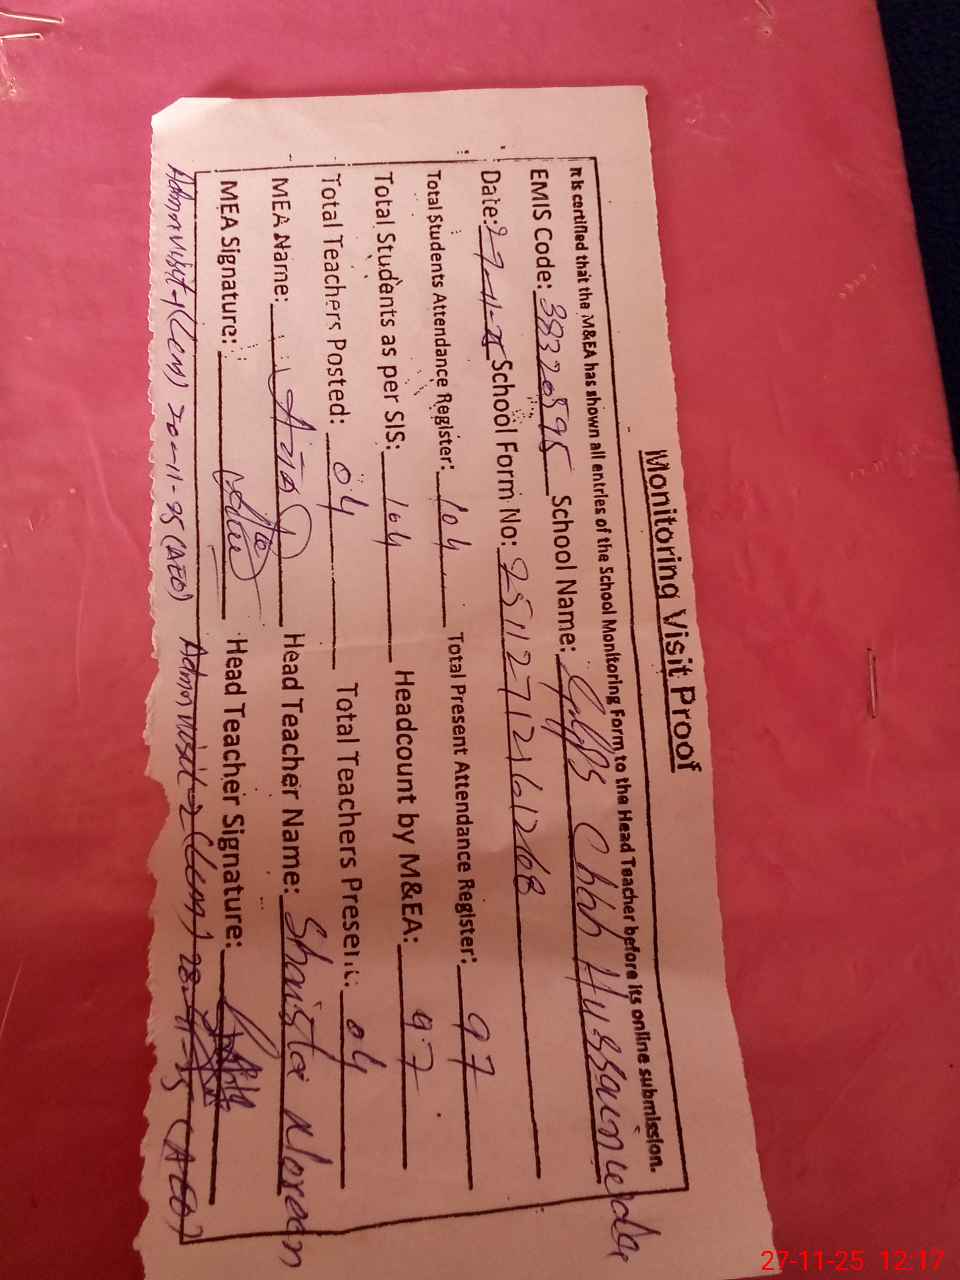 Monitoring Visit Proof
It is certified that the M&EA has shown all entries of the School Monitoring Form to the Head Teacher before its online submission.
EMIS Code: 38320595 School Name: GGPS Chhh Hussainwala
Date: 27-11-25 School Form No: 25112712161268
Total Students Attendance Register: 104 Total Present Attendance Register: 97
Total Students as per SIS: 104 Headcount by M&EA: 97
Total Teachers Posted: 04 Total Teachers Present: 04
MEA Name: Head Teacher Name: Shaista Noreen
MEA Signature: Head Teacher Signature:
Admn visit-1 20-11-25 (AEO) Admn visit-2 28-11-25 (AEO)
27-11-25 12:17